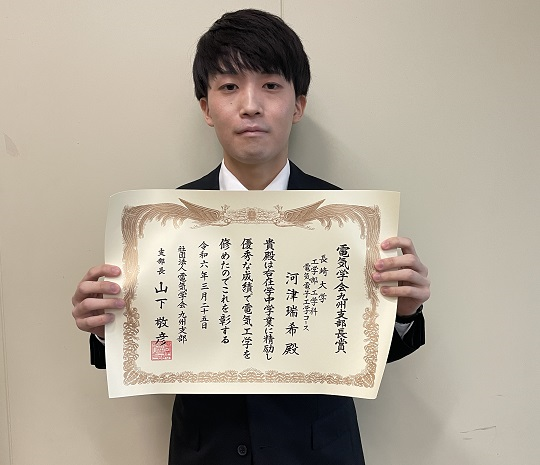 電気学会九州支部長賞
長崎大学
工学部工学科
電気電子工学コース
河津瑞希殿
貴殿は右在学中学業に精励し
優秀な成績で電気工学を
修めたのでこれを彰する
令和六年三月二十五日
社団法人電気学会 九州支部
支部長 山下敬彦